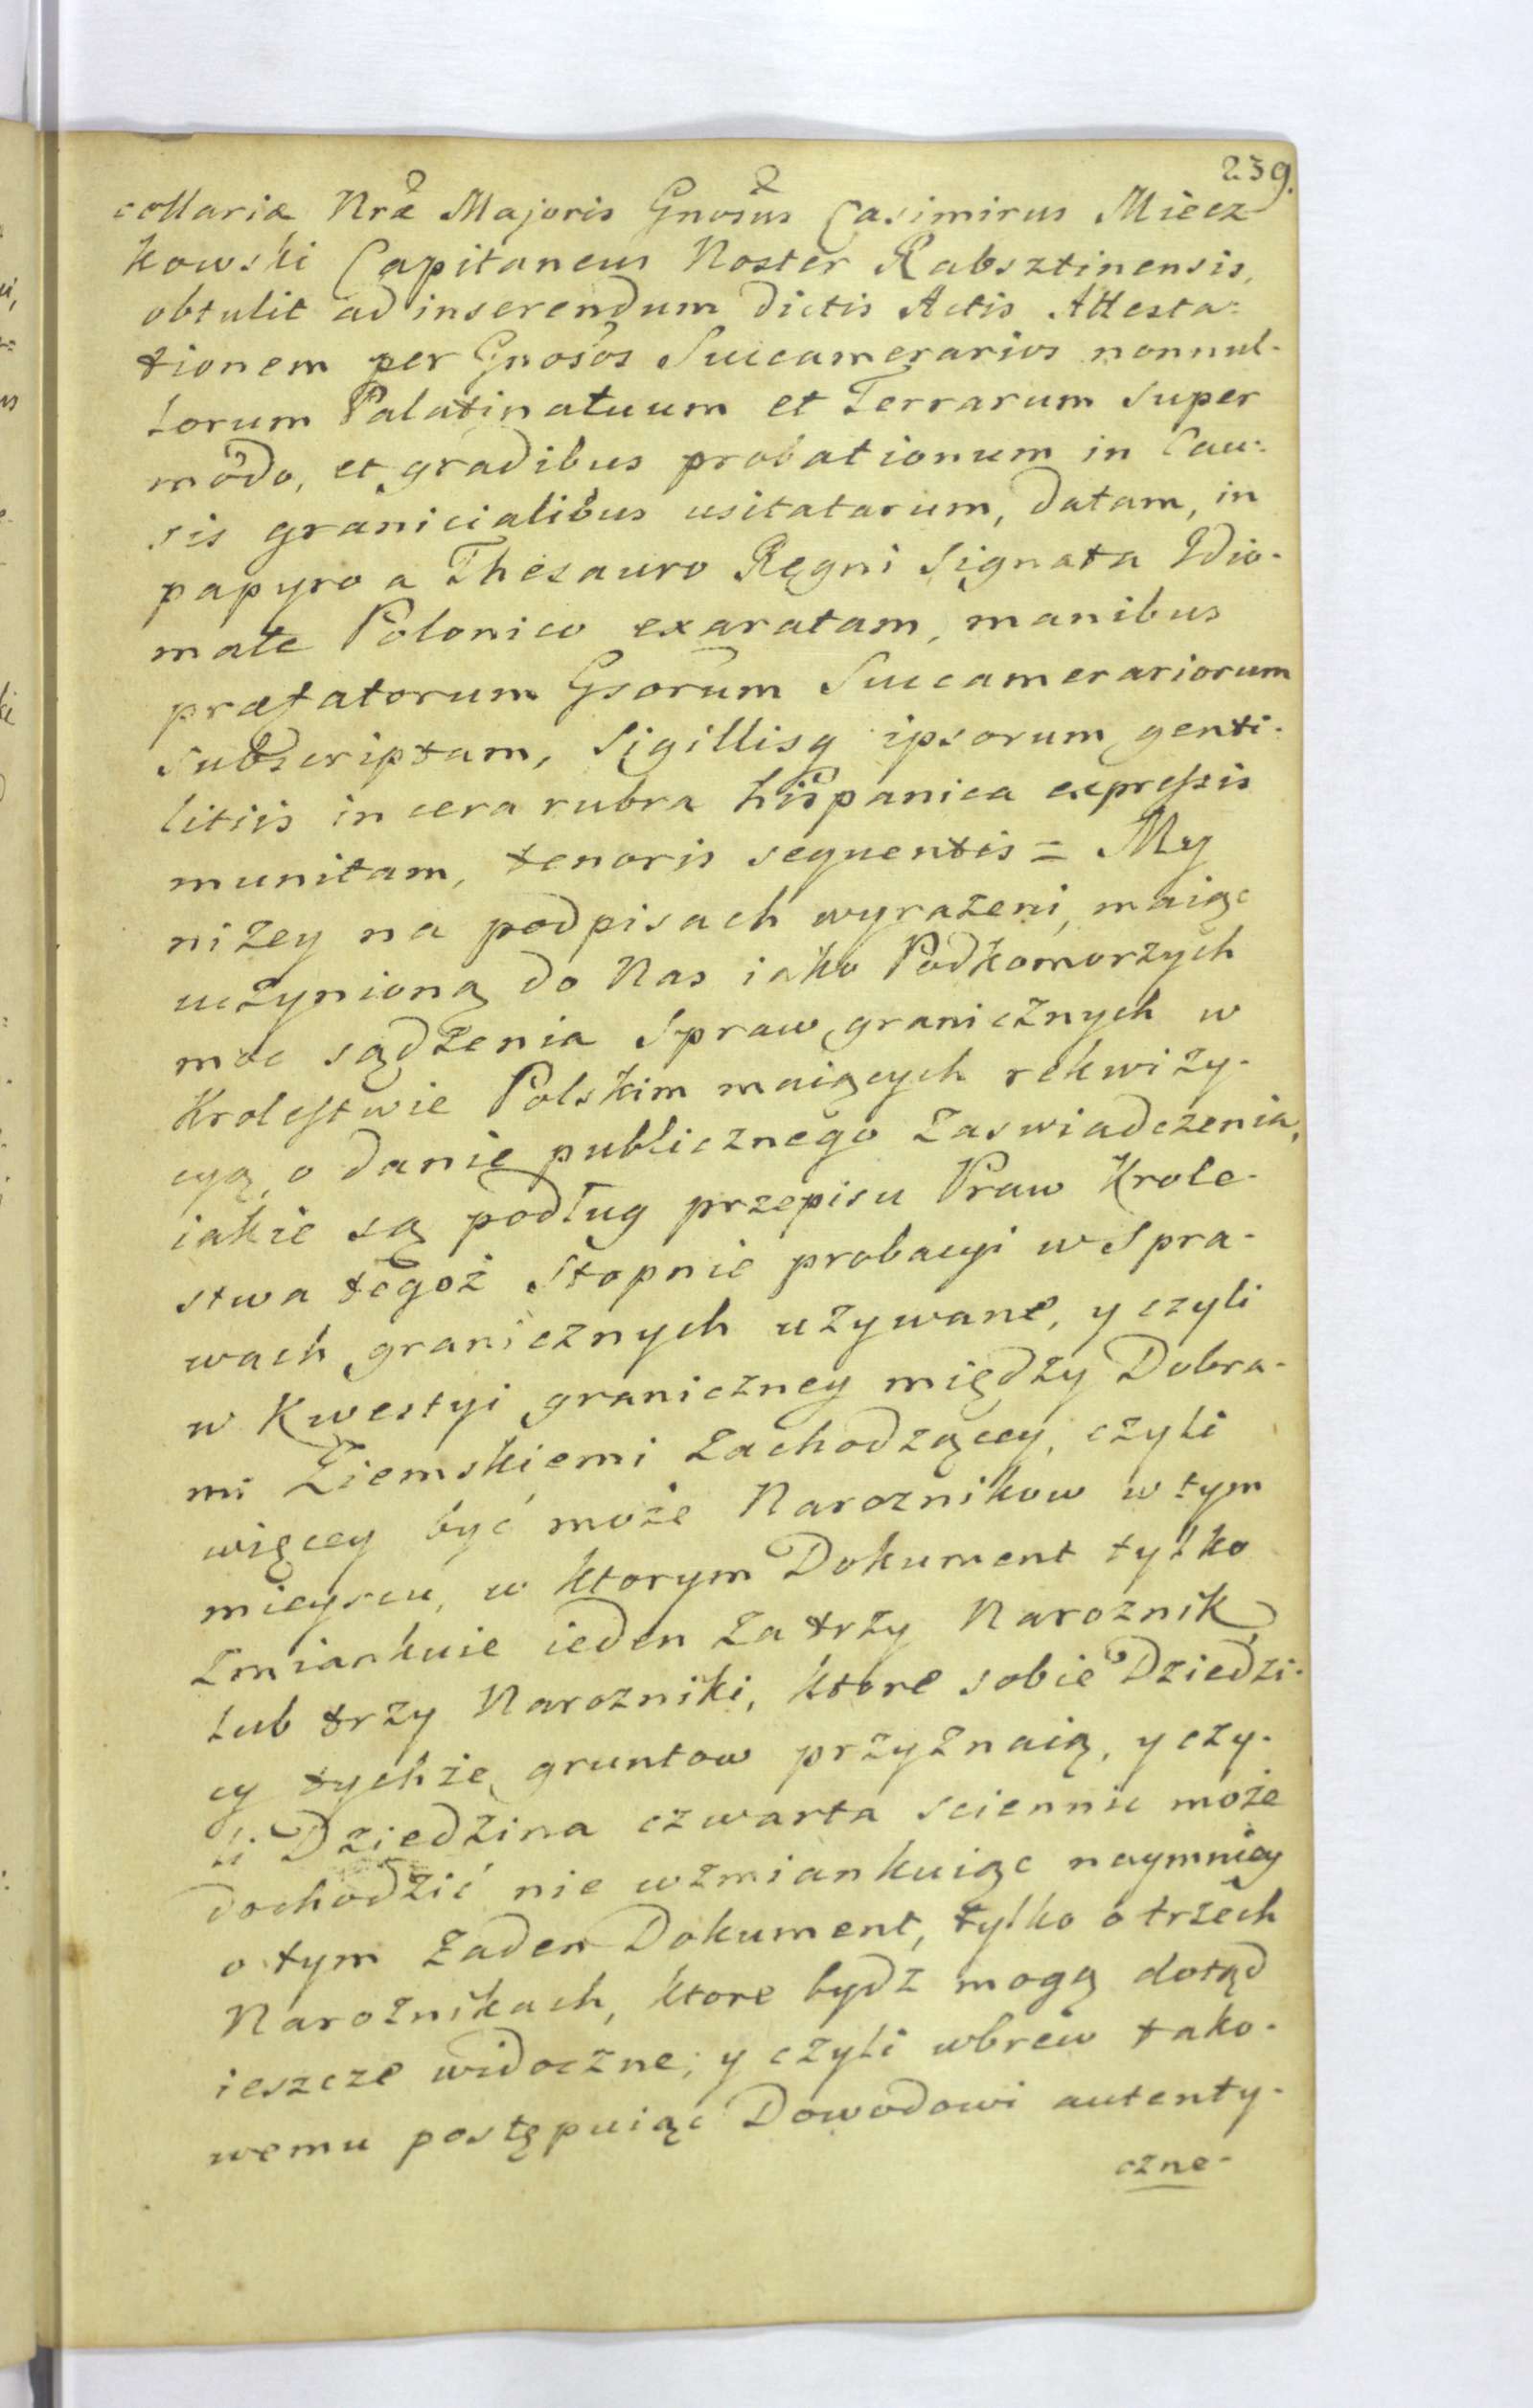 239.
cellariæ Nræ Majoris Gnosus Casimirus Miecz-
kowski Capitaneus Noster Rabsztinensis,
obtulit ad inserendum dictis Actis Attesta-
tionem per Gnosos Succamerarios nonnul-
lorum Palatinatuum et Terrarum super
modo, et gradibus probationum in Cau-
sis granicialibus usitatarum, datam, in
papyro a Thesauro Regni signata Idio-
mate Polonico exaratam, manibus
præfatorum Gsorum Succamerariorum
subscriptam, Sigillisq ipsorum genti-
litiis in cera rubra hispanica expressis
munitam, tenoris sequentis = My
niżey na podpisach wyrażeni, maiąc
uczynioną do Nas iako Podkomorzych
moc sądzenia Spraw granicznych w
Krolestwie Polskim maiących rekwizy-
cyą, o danie publicznego zaswiadczenia,
iakie są podług przepisu Praw Krole-
stwa tegoż Stopnie probacyi w Spra-
wach granicznych używane, y czyli
w Kwestyi graniczney między Dobra-
mi Ziemskiemi zachodzącey, czyli
więcey być może Naroznikow w tym
mieyscu, w ktorym Dokument tylko
zmiankuie ieden za trzy Naroznik
lub trzy Narozniki, ktore sobie Dziedzi-
cy tychże gruntow przyznaią, y czy-
li Dziedzina czwarta sciennie może
dochodzić nie wzmiankuiąc naymniey
o tym żaden Dokument, tylko o trzech
Narożnikach, ktore bydz mogą dotąd
ieszcze widoczne; y czyli wbrew tako-
wemu postępuiąc Dowodowi autenty-
czne-